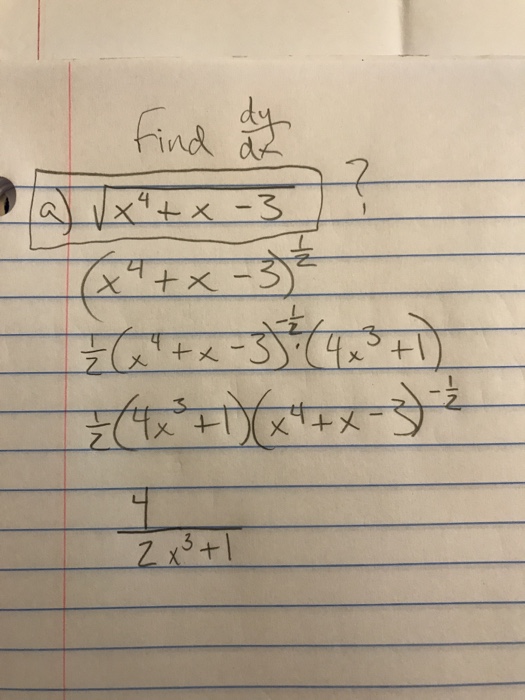 Find dy/dx
a) √(x⁴ + x - 3) ?
(x⁴ + x - 3)^(1/2)
1/2 (x⁴ + x - 3)^(-1/2) · (4x³ + 1)
1/2 (4x³ + 1)(x⁴ + x - 3)^(-1/2)
4
2x³ + 1